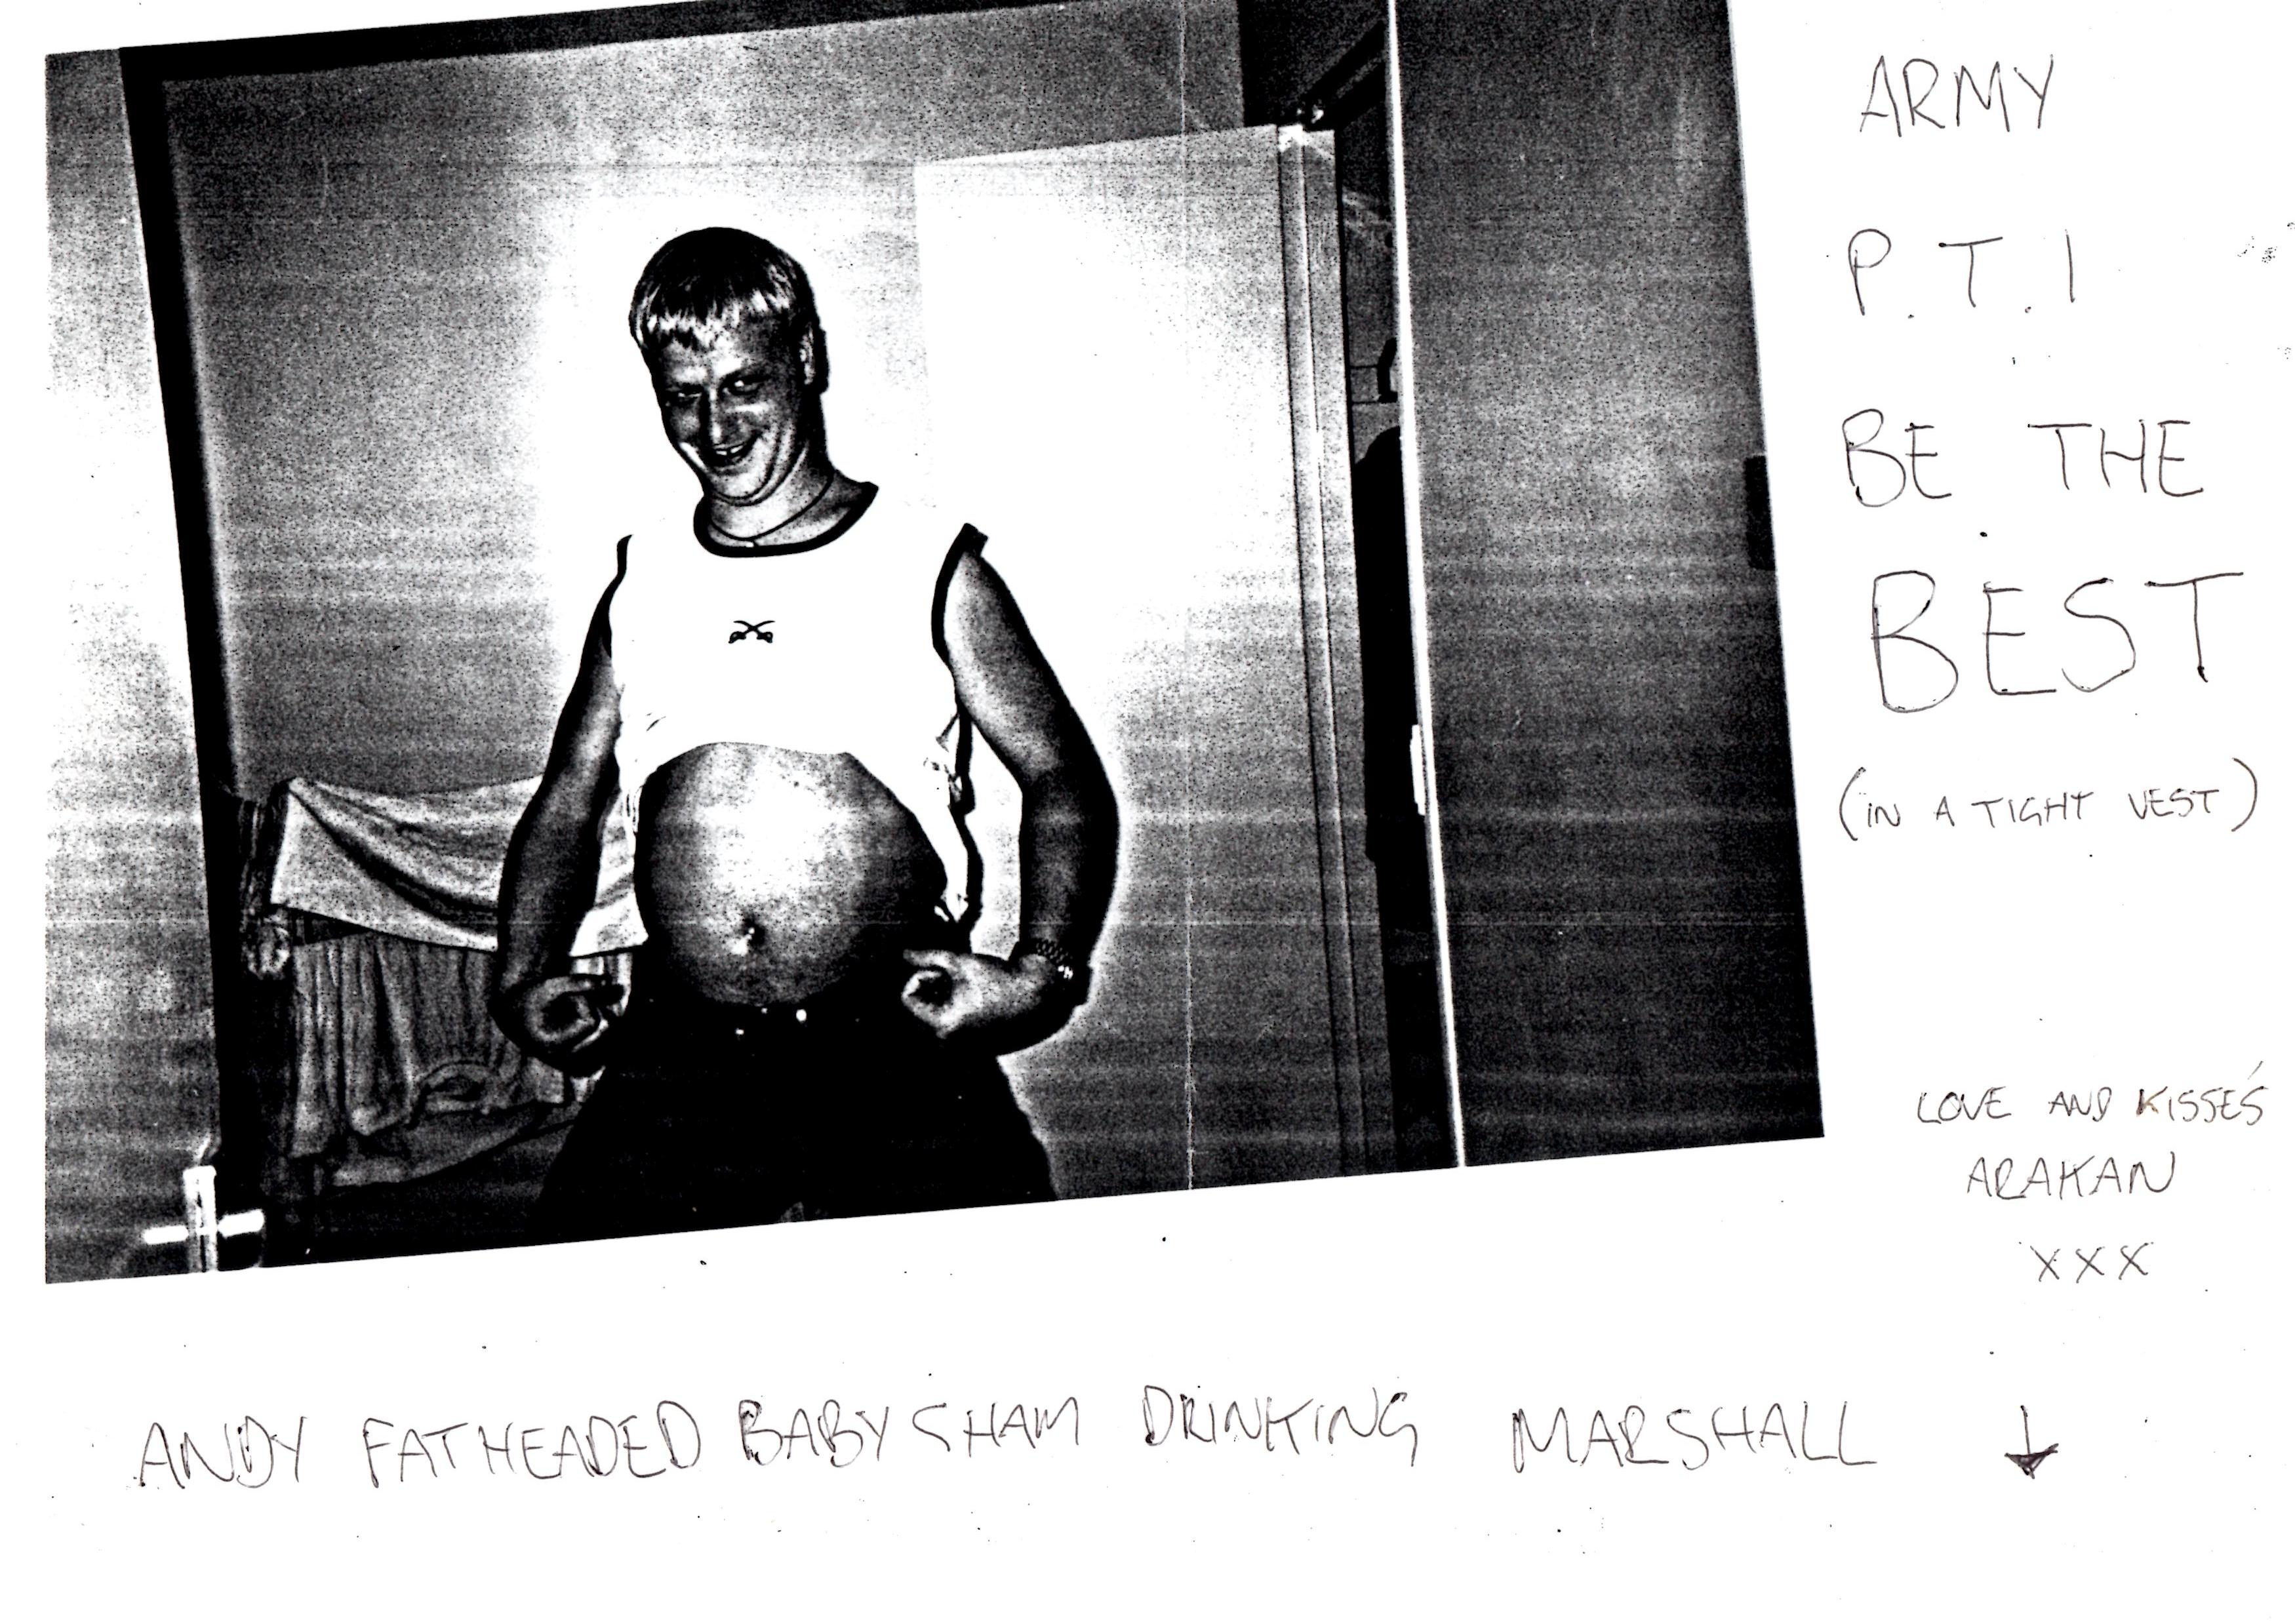 ARMY
P.T.I
BE THE
BEST
(IN A TIGHT VEST)
LOVE AND KISSE'S
ARAKAN
XXX
ANDY FATHEADED BABYSHAM DRINKING MARSHALL